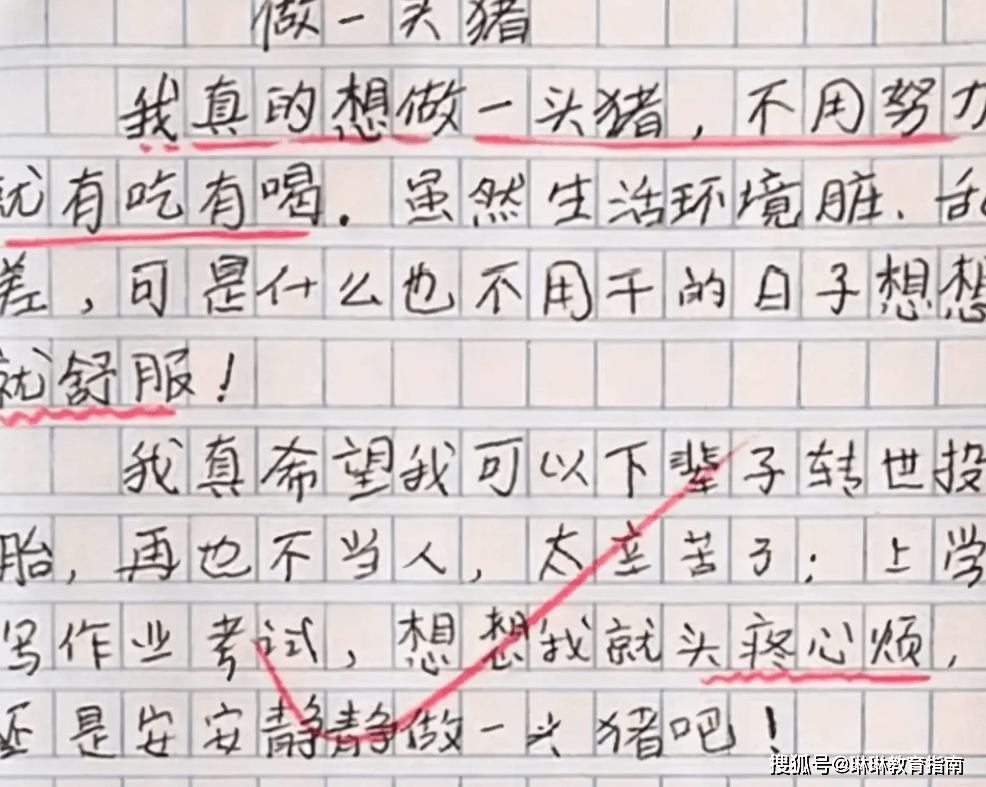 做一头猪
我真的想做一头猪，不用努力
就有吃有喝。虽然生活环境脏、乱
差，可是什么也不用干的日子想想
就舒服！
我真希望我可以下辈子转世投
胎，再也不当人，太辛苦了：上学
写作业考试，想想我就头疼心烦，
还是安安静静做一头猪吧！
搜狐号@琳琳教育指南